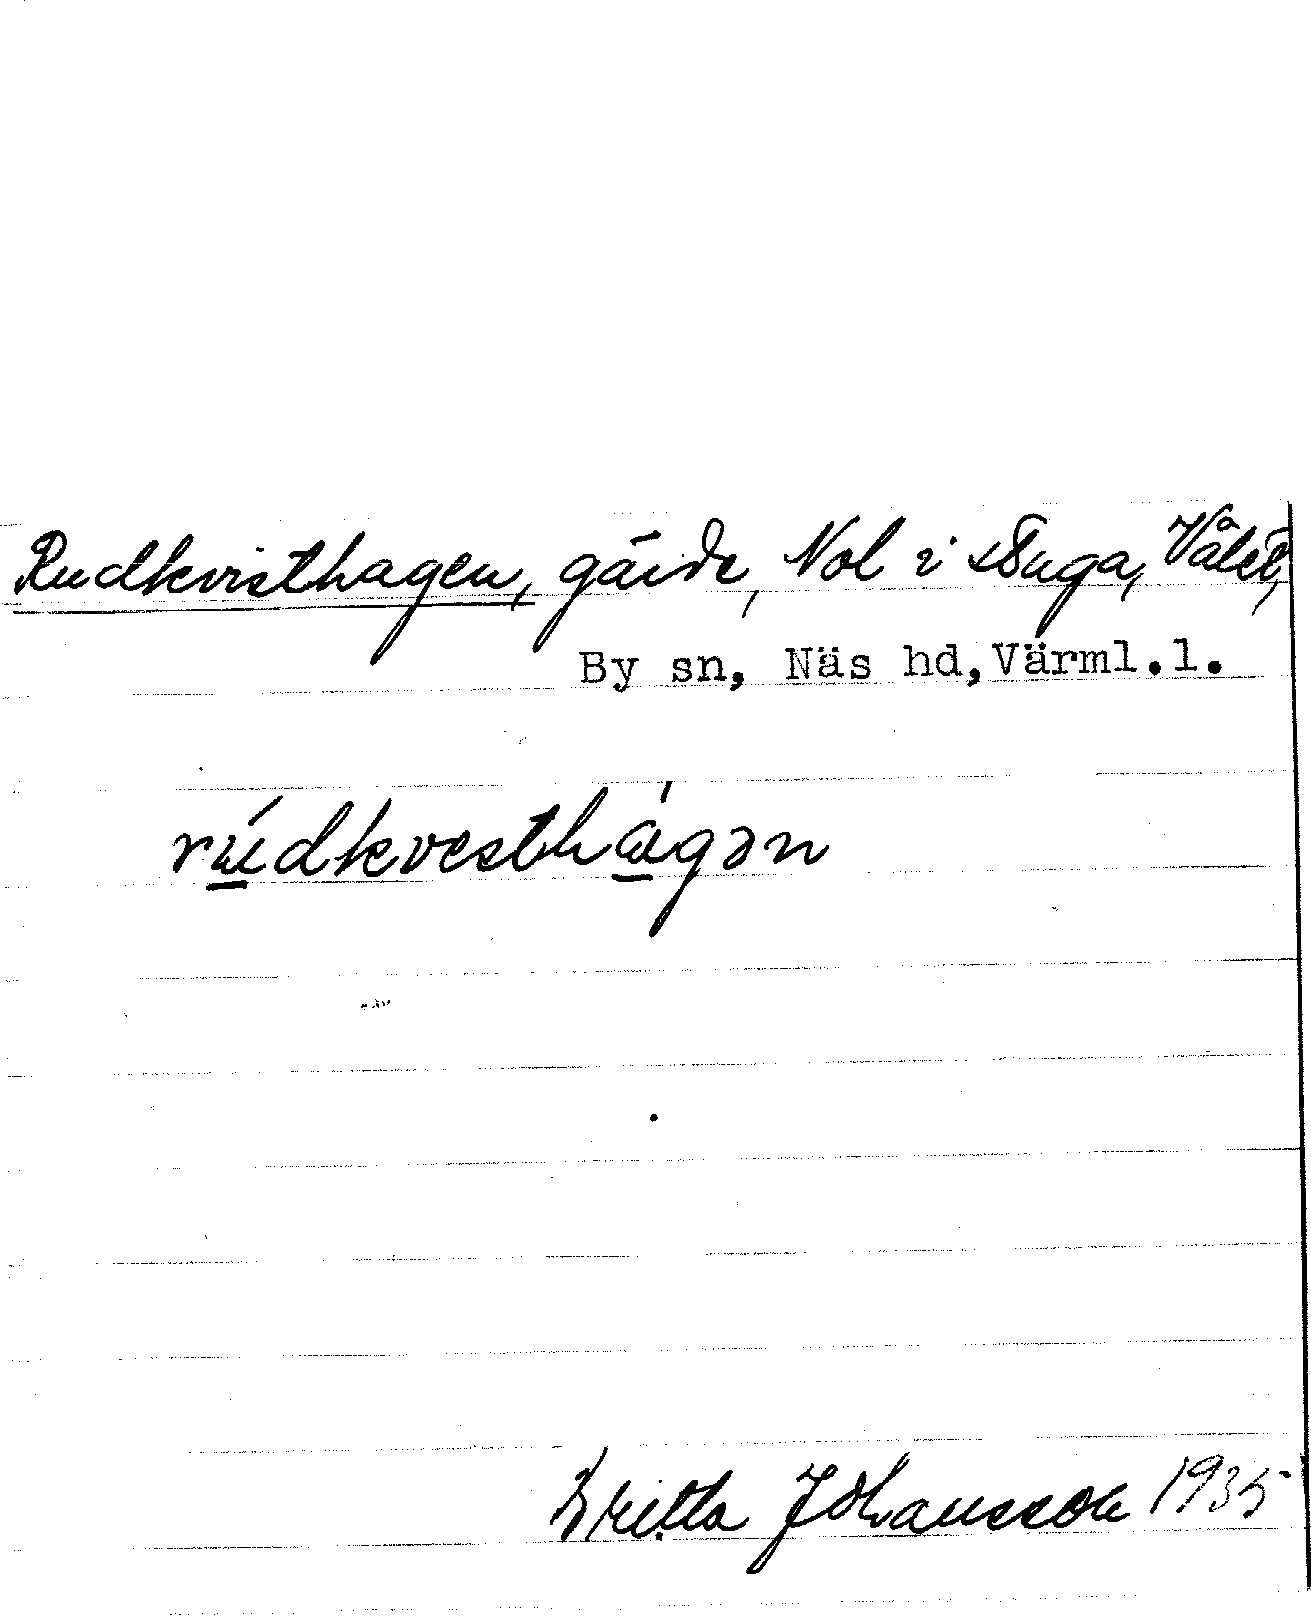 Rudkvisthagen, gärde, Nol i stuga, Vålet,
By sn, Näs hd, Värml.l.
rúdkvesthágən
Britta Johansson 1935